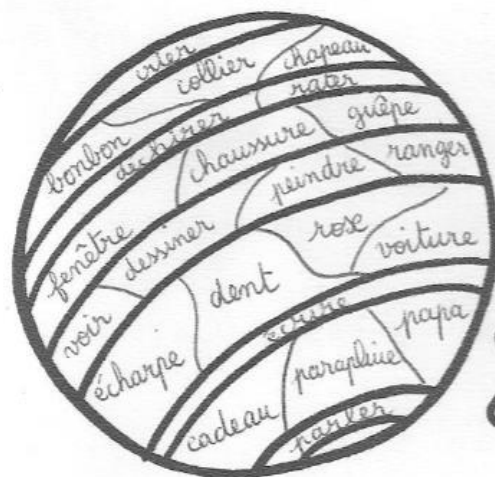 crier
collier
chapeau
bonbon
déchirer
rater
chaussure
guêpe
fenêtre
dessiner
peindre
ranger
voir
dent
rose
voiture
écharpe
écrire
papa
cadeau
parapluie
parler